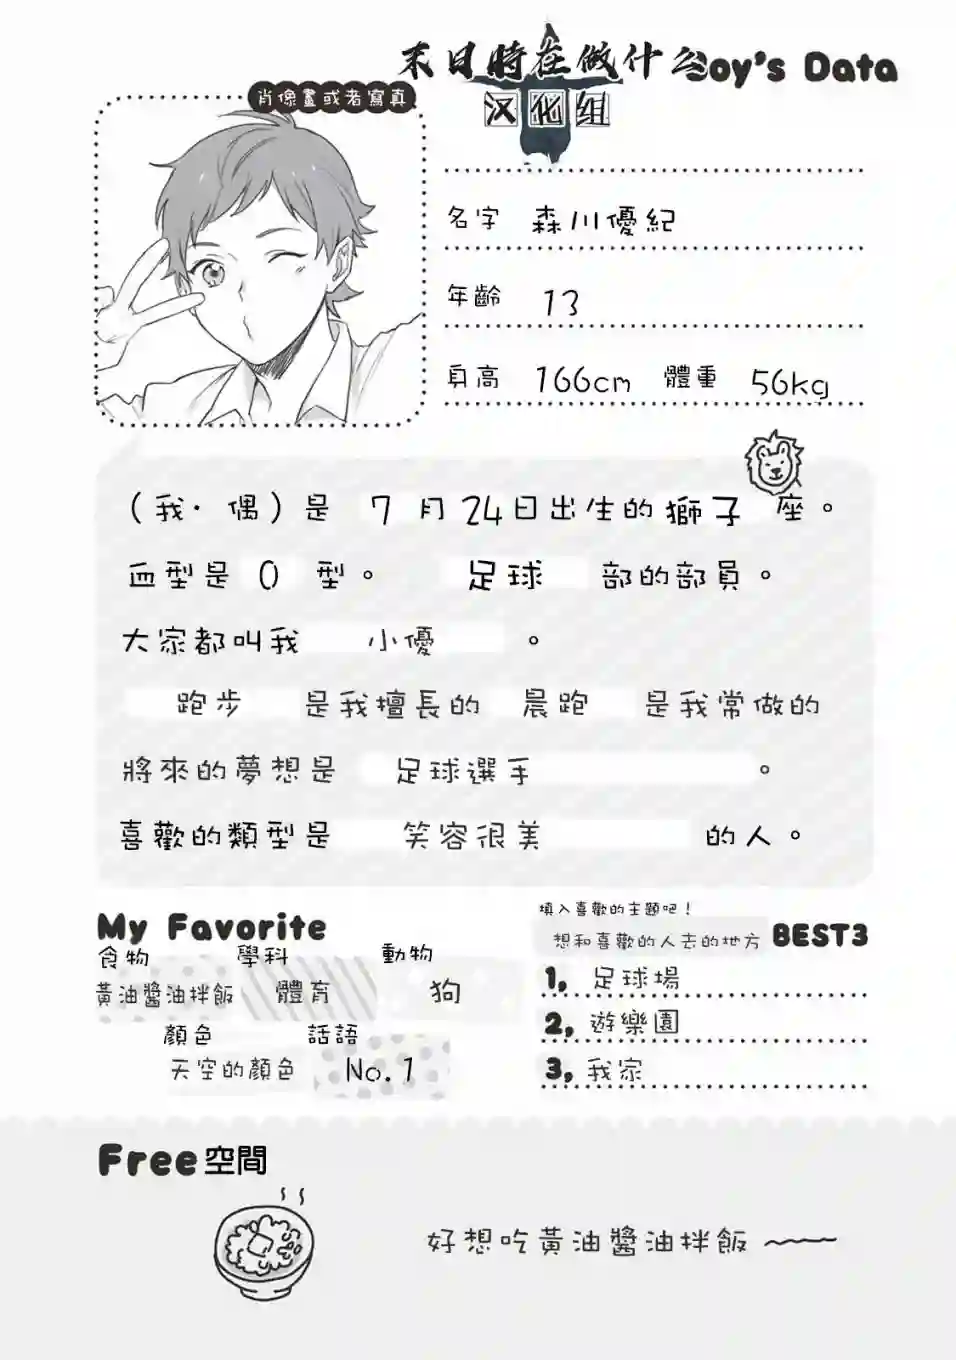 末日時在做什么
Boy's Data
汉化组
肖像畫或者寫真
名字 森川優紀
年齡 13
身高 166cm 體重 56kg
（我・偶）是 7 月 24 日出生的獅子座。
血型是 O 型。 足球 部的部員。
大家都叫我 小優 。
跑步 是我擅長的 晨跑 是我常做的
將來的夢想是 足球選手 。
喜歡的類型是 笑容很美 的人。
My Favorite
食物 學科 動物
黃油醬油拌飯 體育 狗
顏色 話語
天空的顏色 No.1
填入喜歡的主題吧！
想和喜歡的人去的地方 BEST3
1, 足球場
2, 遊樂園
3, 我家
Free空間
好想吃黃油醬油拌飯～